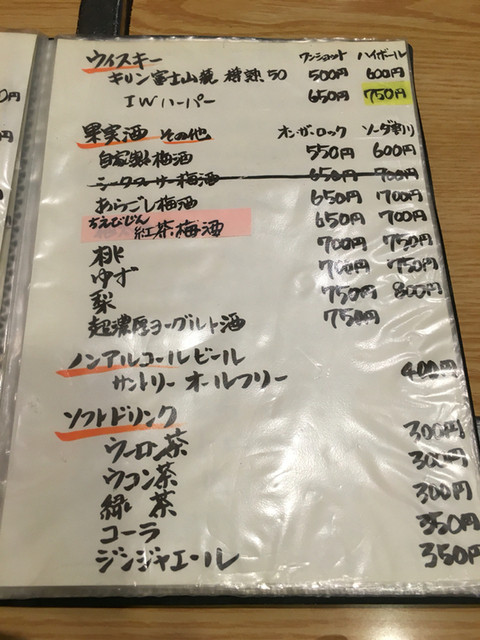 ウィスキー ワンショット ハイボール
キリン富士山麓 樽熟50 500円 600円
I.W.ハーパー 650円 750円
果実酒 その他 オンザロック ソーダ割り
自家製梅酒 550円 600円
シークワーサー梅酒 650円 700円
あらごし梅酒 650円 700円
ちえびじん 紅茶梅酒 650円 700円
桃 700円 750円
ゆず 700円 750円
梨 750円 800円
超濃厚ヨーグルト酒 750円
ノンアルコールビール
サントリー オールフリー 400円
ソフトドリンク
ウーロン茶 300円
ウコン茶 300円
緑茶 300円
コーラ 350円
ジンジャエール 350円